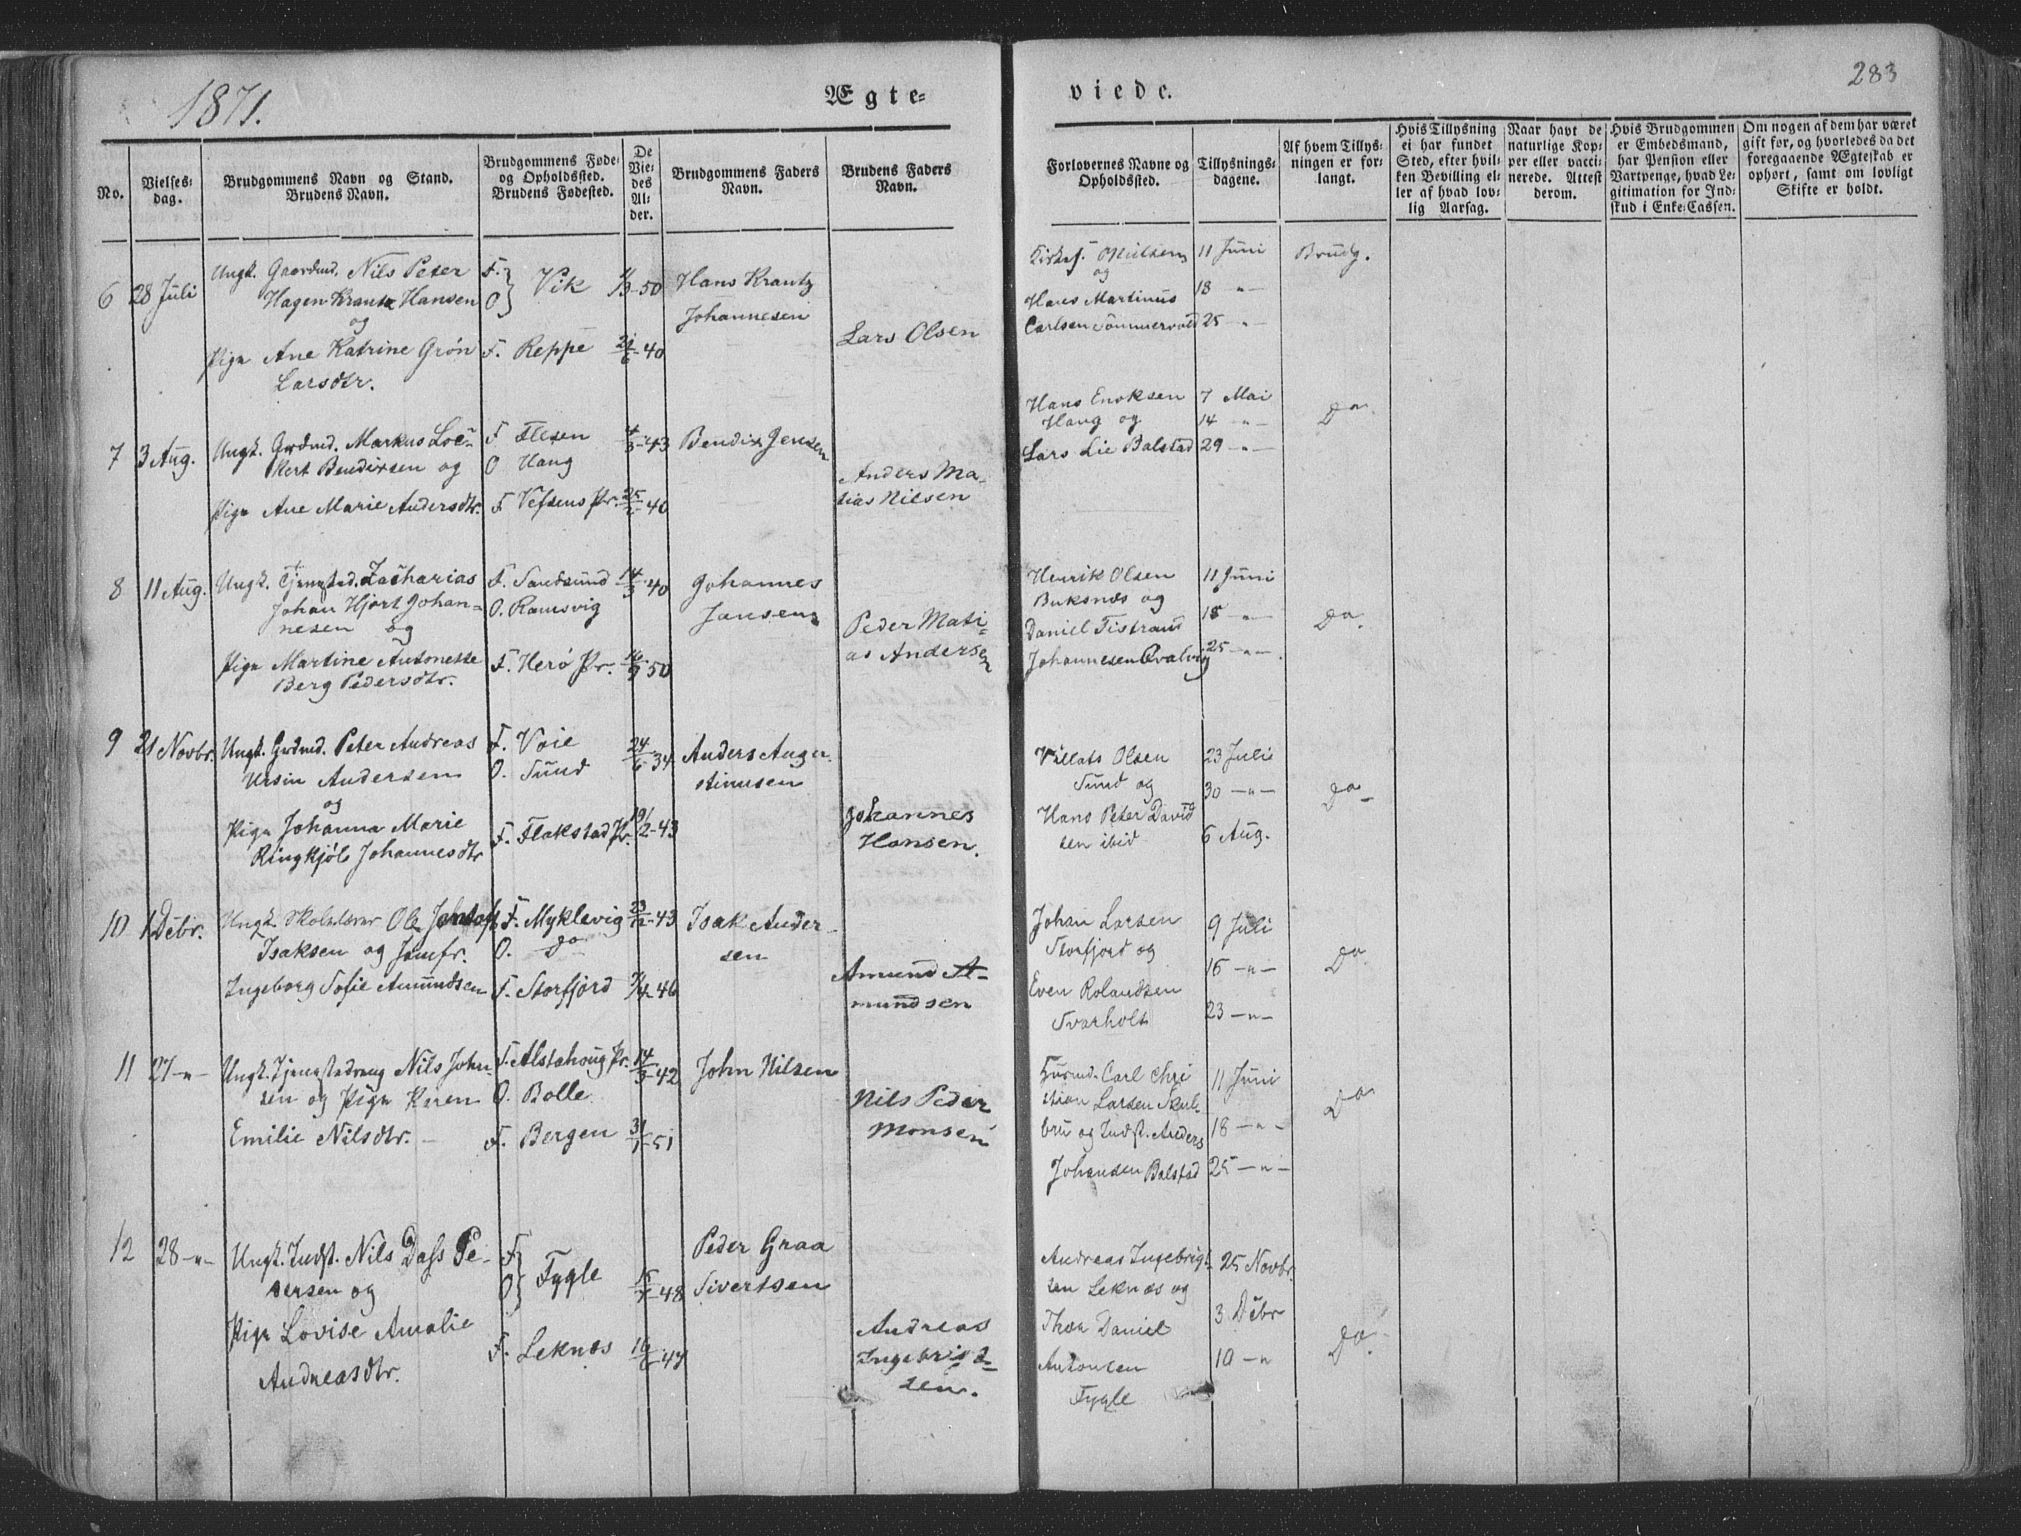 1871.
Ægte-
viede.
283
No.
Vielses-dag.
Brudgommens Navn og Stand.
Brudens Navn.
Brudgommens Føde-
og Opholdssted.
Brudens Fødested.
De
Vie-
des
Al-
der.
Brudgommens Faders
Navn.
Brudens Faders
Navn.
Forlovernes Navne og
Opholdssted.
Tillysnings-
dagene.
Af hvem Tillys-
ningen er for-
langt.
Hvis Tillysning
ei har fundet
Sted, efter hvil-
ken Bevilling el-
ler af hvad lov-
lig Aarsag.
Naar havt de
naturlige Kop-
per eller vacci-
nerede. Attest
derom.
Hvis Brudgommen
er Embedsmand,
har Pension eller
Vartpenge, hvad Le-
gitimation for Ind-
skud i Enke-Cassen.
Om nogen af dem har været
gift før, og hvorledes da det
foregaaende Ægteskab er
ophørt, samt om lovligt
Skifte er holdt.
6 28 Juli
Ungk. Gaardmd. Nils Peter
Hagen Krantz Hansen
og
Pige Ane Katrine Grøn
Larsdtr.
F.
O } Vik
F. Reppe
-50
21/6-40
Hans Krantz
Johannesen
Lars Olsen
Kirkes. O Nilsen
og
Hans Martinus
Carlsen Sommervold
11 Juni
18 -"-
25 -"-
Brudg.
7 3 Aug.
Ungk. Grdmd. Markus Loc-
kert Bendixsen og
Pige Ane Marie Andersdtr.
F Flesen
O Haug
F Vefsens Pr.
4/3-43
-40
Bendix Jensen
Anders Ma-
tias Nilsen
Hans Enoksen
Haug og
Lars Lie Balstad
7 Mai
14 -"-
29 -"-
Do.
8 11 Aug.
Ungk. Tjenested. Zacharias
Johan Hjort Johan-
nesen og
Pige Martine Antonette
Berg Pedersdtr.
F. Sandsund
O. Ramsvig
F. Herø Pr.
14/3-40
16/9-50
Johannes
Jansen
Peder Mati-
as Andersen
Henrik Olsen
Buksnæs og
Daniel Tistrand
Johannesen Qvalvig
11 Juni
18 -"-
25 -"-
Do.
9 21 Novbr.
Ungk. Grdmd. Peter Andreas
Ursin Andersen
og
Pige Johanna Marie
Ringkjøb Johannesdtr
F. Voie
O. Sund
F. Flakstad Pr.
24/6-34
19/2-43
Anders Augu-
stinusen
Johannes
Hansen.
Villats Olsen
Sund og
Hans Peter David
sen ibid
23 Juli
30 -"-
6 Aug.
Do
10 1 Debr.
Ungk. Skolelærer Ole
Isaksen og Jomfr.
Ingeborg Sofie Amundsen
F. Myklevig
O. Do
F. Storfjord
23/12-43
-46
Isak Ander-
sen
Amund A-
mundsen
Johan Larsen
Storfjord og
Even Rolandsen
Svarholt
9 Juli
16 -"-
23 -"-
Do
11 27 -"-
Ungk. Tjenestedreng Nils John-
sen og Pige Karen
Emilie Nilsdtr. -
F. Alstahoug Pr.
O. Bolle
F. Bergen
14/3-42
31/1-51
John Nilsen
Nils Peder
Monsen
Husmd. Carl Chri
stian Larsen Skul-
bru og Indst. Anders
Johansen Balstad
11 Juni
18 -"-
25 -"-
Do
12 28 -"-
Ungk. Indst. Nils Dass Pe-
dersen og
Pige Lovise Amalie
Andreasdtr.
F
O } Fygle
F. Leknæs
-48
16/6-47
Peder Graa
Sivertsen
Andreas
Ingebrigt-
sen.
Andreas Ingebrigt-
sen Leknæs og
Thor Daniel
Antonsen
Fygle
25 Novbr.
3 Debr
10 -"
Do